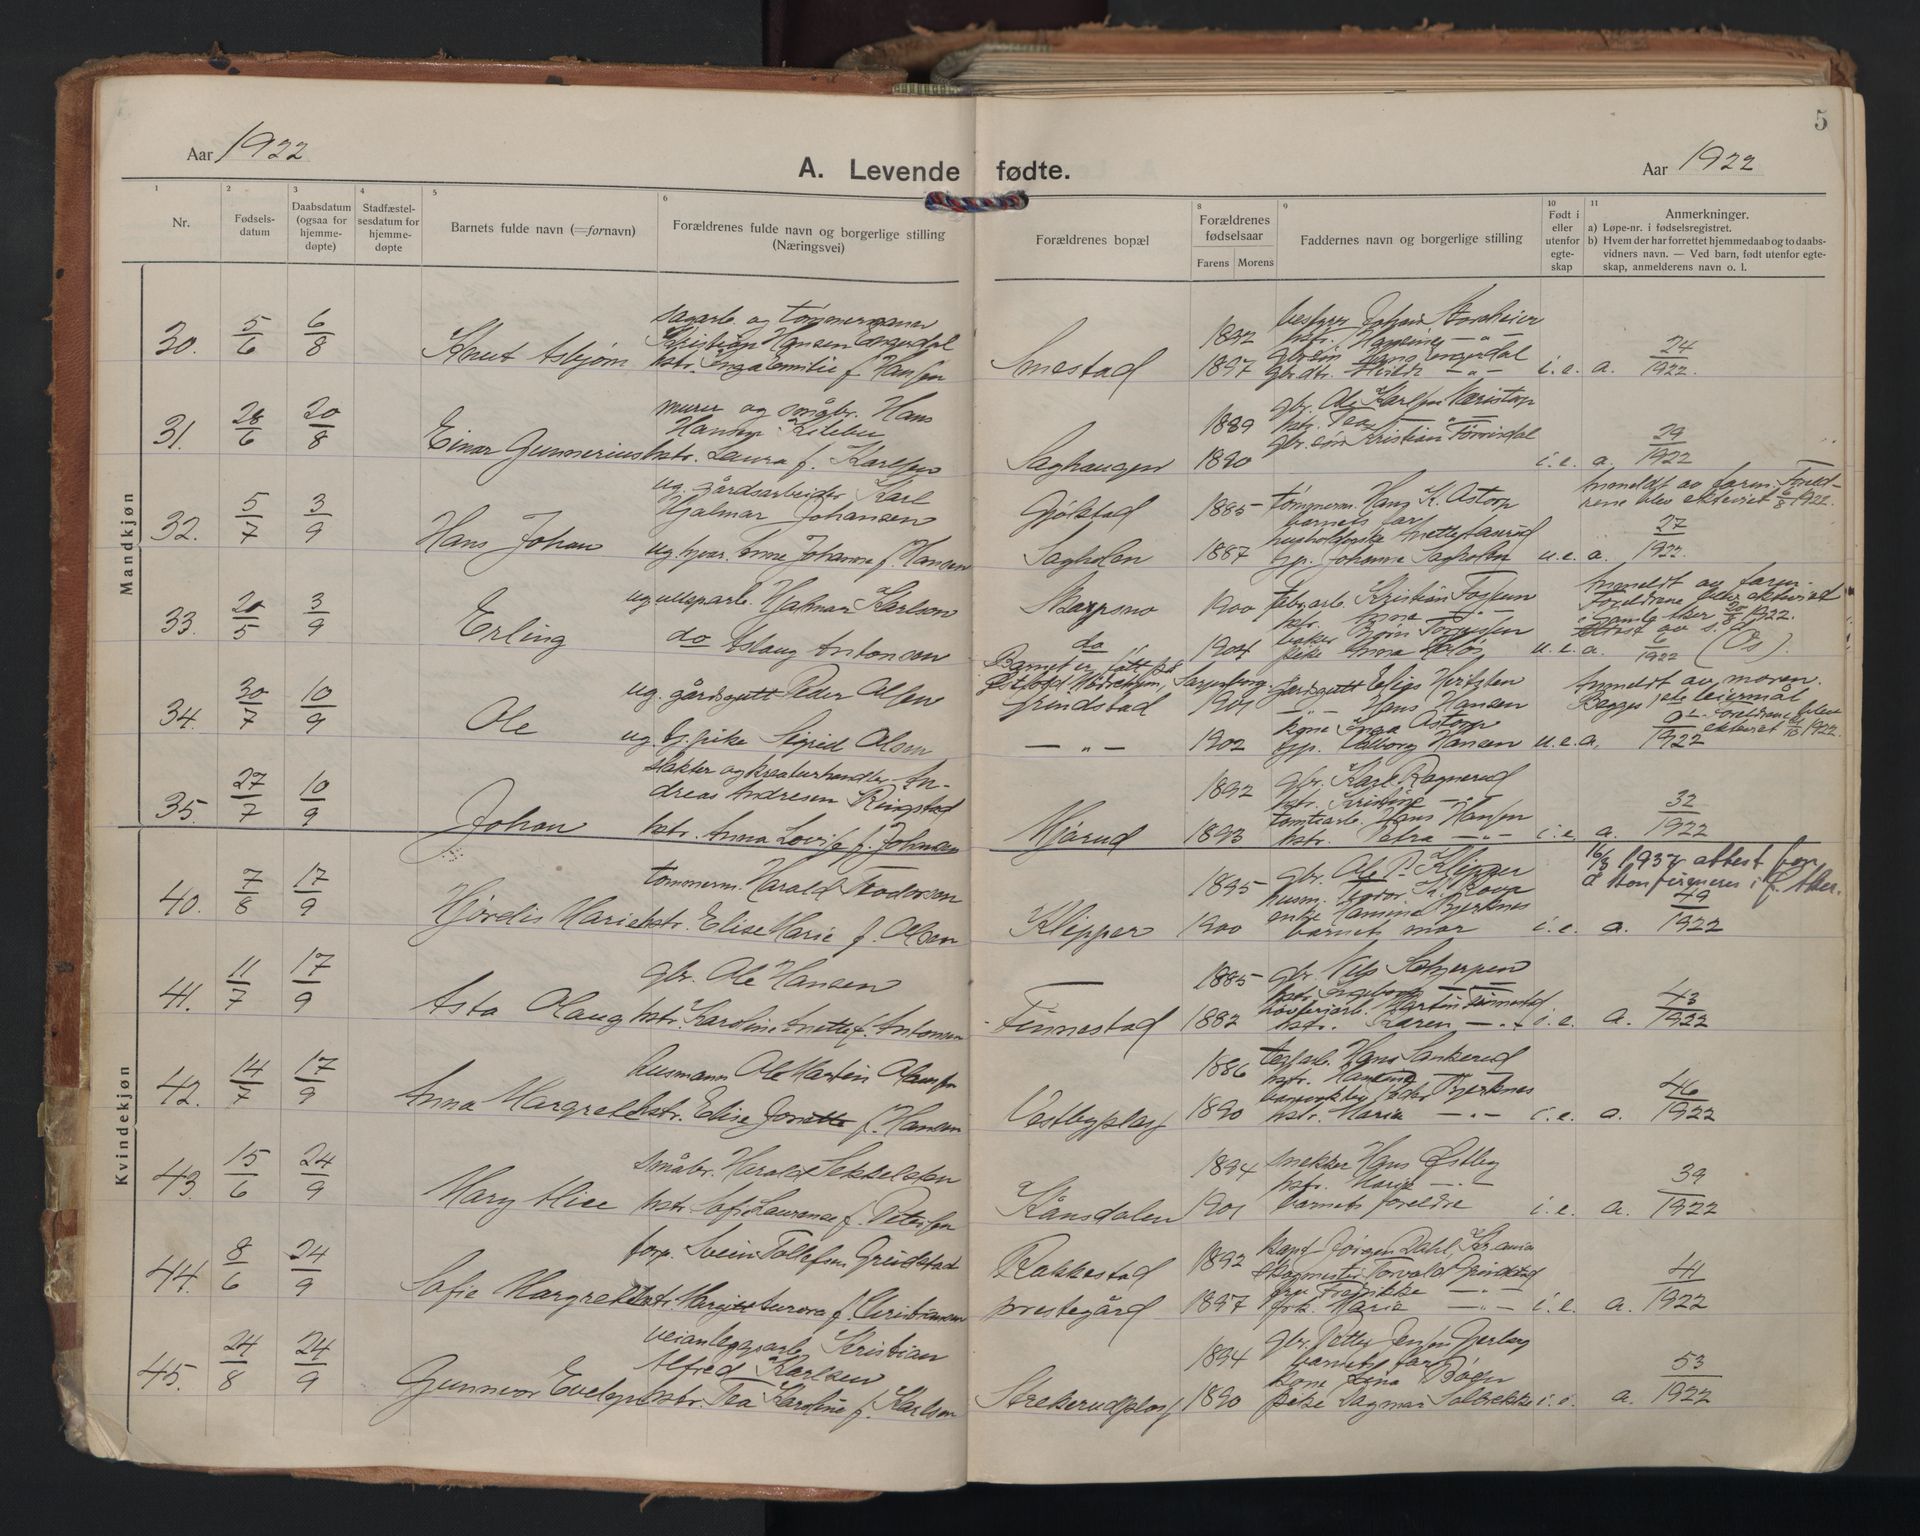 5
Aar 1922
A. Levende fødte.
Aar 1922
1 2 3 4 5 6 8 9 10 11
Nr.
Fødsels-
datum
Daabsdatum
(ogsaa for
hjemme-
døpte)
Stadfæstel-
sesdatum for
hjemme-
døpte
Barnets fulde navn (=fornavn)
Forældrenes fulde navn og borgerlige stilling
(Næringsvei)
Forældrenes bopæl
Forældrenes
fødselsaar
Farens Morens
Faddernes navn og borgerlige stilling
Født i
eller
utenfor
egte-
skap
Anmerkninger.
a) Løpe-nr. i fødselsregistret.
b) Hvem der har forrettet hjemmedaab og to daabs-
vidners navn. — Ved barn, født utenfor egte-
skap, anmelderens navn o. l.
Mandkjøn
30. 5/6 6/8 Knut Asbjørn
sagarb. og tømmermann
Kristian Hansen Engerdal
hstr. Inga Emilie f. Hansen
Smestad
1892
1897
bestyrer Johan
hstr. —„—
gbr.søn Hans Engerdal
gbr.dtr. —„—
i.e. a. 24/1922.
31. 28/6 20/8 Einar Gunnerius
murer og småbr. Hans
Hansen
hstr. Laura f. Karlsen
Saghaugen
1889
1890
gbr. Ole Karlsen
hstr. Tea —„—
gbr. søn Kristian
i.e. a. 29/1922
32. 5/7 3/9 Hans Johan
ug. gårdsarbeider Karl
Hjalmar Johansen
ug. tjen. Anne Johanne f. Hansen
Gjølstad
Sagholen
1885
1887
tømmerm. Hans K. Astorp
barnets far
husholderske Anette
tjp. Johanne Sagholen
u.e. a. 27/1922.
Anmeldt av faren. Foreld-
rene blev ekteviet 6/8 1922.
33. 20/5 3/9 Erling
ug ullsparb. Hjalmar Karlson
do Aslaug Antonsen
do
1900
1904
fabr.arb. Kristian
hstr. Anna —„—
baker
pike Anna
u.e. a. 6/1922 (Os).
Anmeldt av faren.
Foreldrene blev ekteviet
20/8 1922.
Attest av s. d.
34. 30/7 10/9 Ole
ug. gårdsgutt Peder Olsen
ug. tj. pike Sigrid Olsen
Barnet er født på
Østfold Mødrehjem, Sarpsborg.
Grindstad
—„—
1901
1902
gårdsgutt
—„— Hans Hansen
kone Inga Astorp
tjp. Valborg Hansen
u.e. a.
Anmeldt av moren.
Begges 1ste leiermål
Foreldrene blev
ekteviet 1922.
35. 27/7 10/9 Johan
slakter og kreaturhandler An-
dreas Andresen Ringstad
hstr. Anna Lovise f. Johansen
Mjørud
1892
1893
gbr. Karl Ragnerud
hstr. Kristine —„—
tomtearb. Hans Hansen
hstr. Petra —„—
i.e. a. 32/1922
Kvindekjøn
40. 7/8 17/9 Hjørdis Marie
tømmerm. Harald Teodorsen
hstr. Elise Marie f. Olsen
Klipper
1895
1900
gbr. Ole P. Klipper
husm. Teodor
enke Hansine Bjerknes
barnets mor
i.e. a. 49/1922
16/3 1937 attest for
å konfirmeres i f. Aker.
41. 11/7 17/9 Asta Olaug
gbr. Ole Hansen
hstr. Karoline Anette f. Antonsen
Finnestad
1885
1882
gbr. Nils
hstr. Ingeborg —„—
høvleriarb. Martin Finnestad
hstr. Karen —„—
i.e. a. 43/1922
42. 14/7 17/9 Anna Margrete
husmann Ole Martin Olausen
hstr. Elise Josette f. Hansen
Vestbyplass
1886
1890
teglarb. Hans Sankerud
hstr. Hansine
Bjerknes
hstr. Marie —„—
i.e. a. 46/1922
43. 15/6 24/9 Mary Alice
småbr. Harald Sekkelsten
hstr. Sofie Laurense f. Petersen
Kånsdalen
1894
1901
snekker Hans Østby
hstr. Marie —„—
barnets foreldre
i.e. a. 39/1922
44. 8/6 24/9 Sofie Margrethe
forp. Svein Tollefsen Grindstad
hstr. Margit Aurora f. Christiansen
Rakkestad
prestegård
1892
1897
kapt. Jørgen Dahl, Kr.ania
Torvald Grindstad
fru Fredrikke —„—
frk. Marie —„—
i.e. a. 41/1922
45. 24/8 24/9 Gunnvor Evelyn
veianleggsarb. Kristian
Alfred Karlsen
hstr. Tea Karoline f. Karlsen
Strekerudplass
1894
1890
gbr. Petter Jensen Gjerberg
barnets far
kone Lina Bøen
pike Dagmar Solbrekke
i.e. a. 53/1922